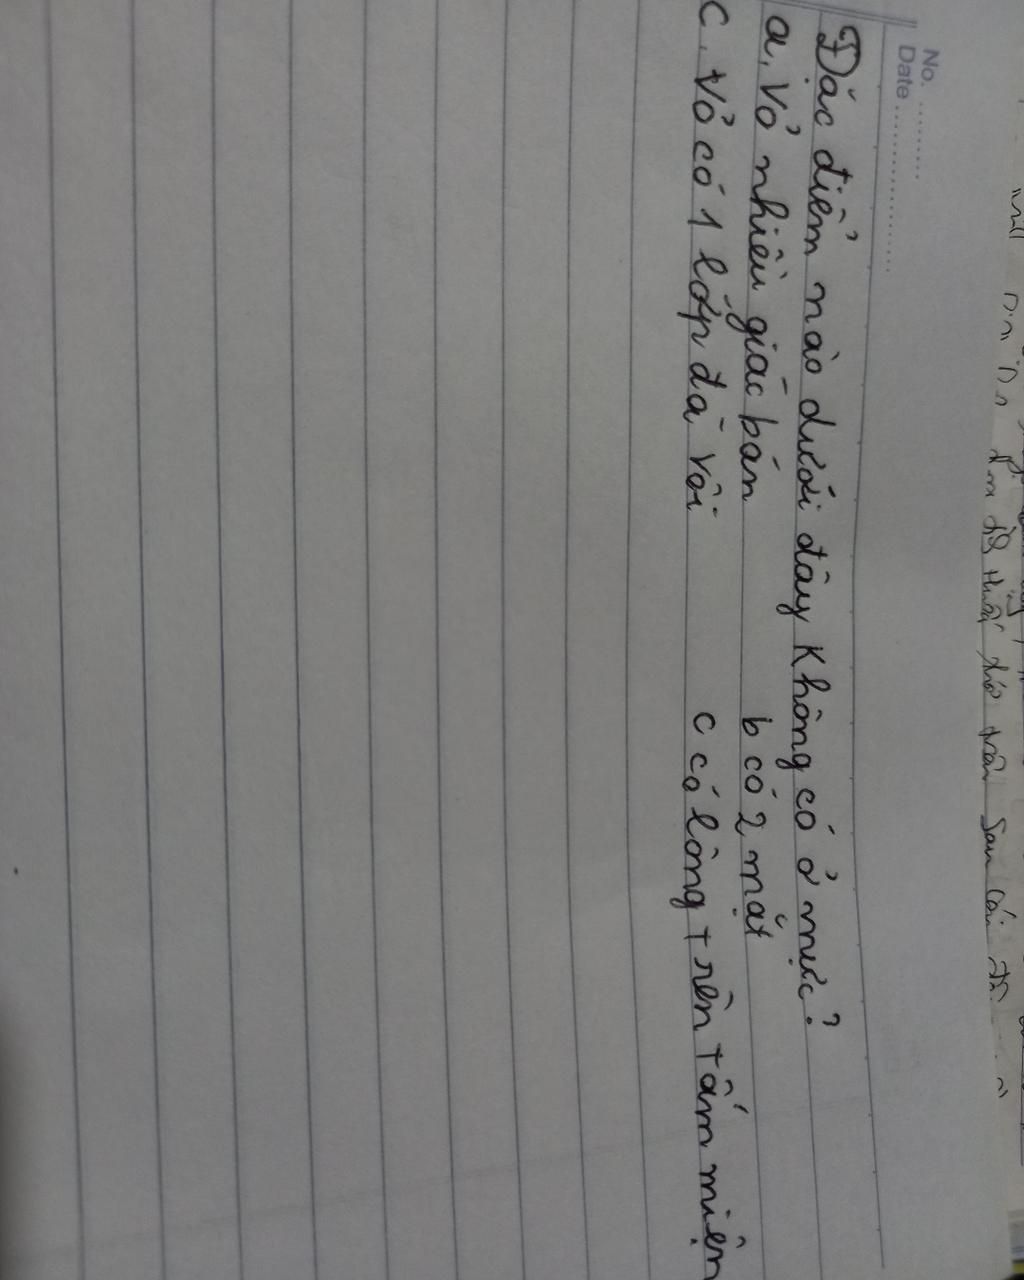 No. ..........
Date ......................
Đặc điểm nào dưới đây không có ở mực?
a, Vỏ nhiều giác bán b có 2 mặt
c, vỏ có 1 lớp đá vôi c có lông trên tấm miện